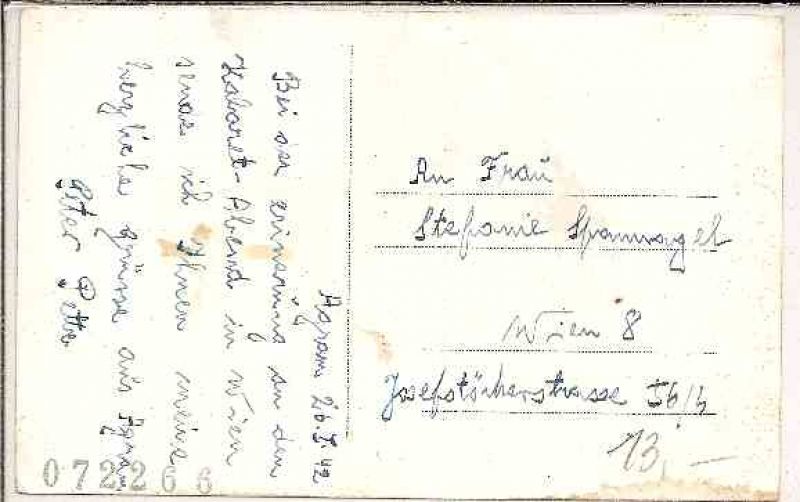 Agram 26.I.42
Bei der erinnerung an den
Kabaret-Abend in Wien
sende ich Ihnen meine
herzliche Grüsse aus Agram
Peter
An Frau
Stefanie Spannagel
Wien 8
Josefstötherstrasse 56/4
13,—
072266